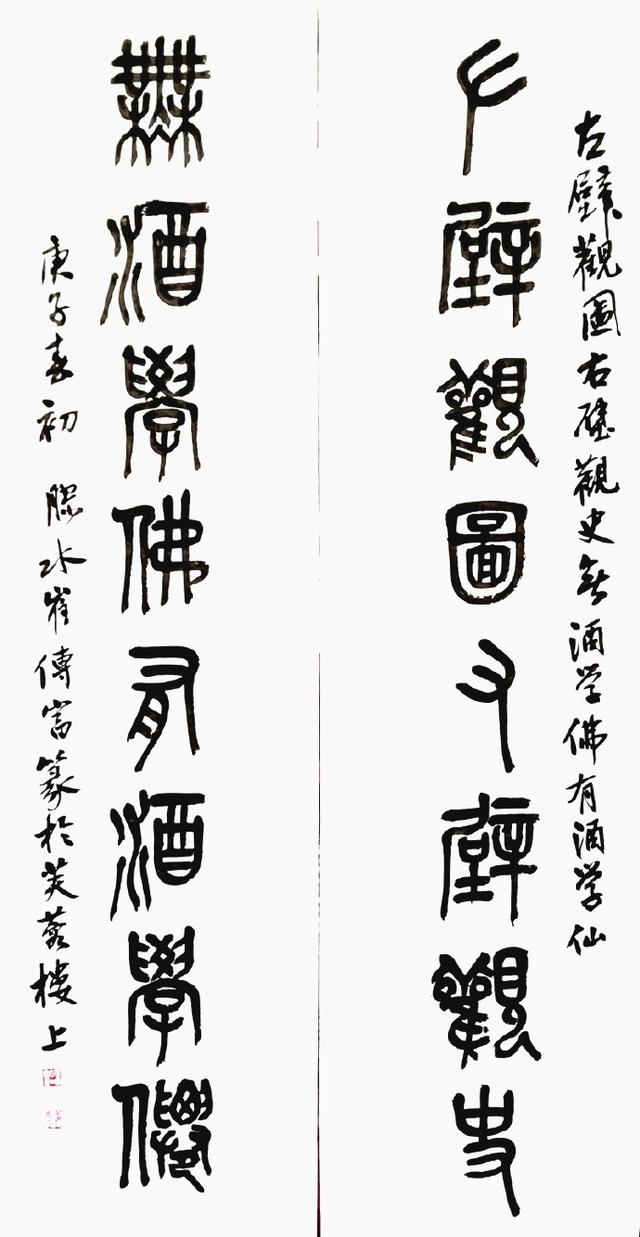 左壁觀圖右壁觀史無酒学佛有酒学仙
左壁觀圖右壁觀史
無酒學佛有酒學僊
庚子春初 膠水崔傳富篆於芙蓉樓上